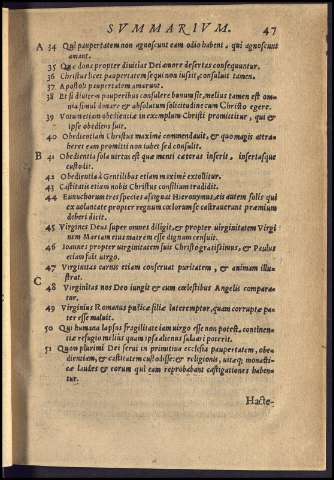 SVMMARIVM. 47
A 34 Qui paupertatem non agnoscunt eam odio habent, qui agnoscunt
amant.
35 Quæ donc propter diuitias Dei amore desertas consequuntur.
36 Christus licet paupertatem sequi non iussit, consuluit tamen.
37 Apostoli paupertatem amarunt.
38 Et si diuitem pauperibus consulere bonum sit, melius tamen est om-
nia simul donare & absolutum solicitudine cum Christo egere.
39 Votum etiam obedientiæ in exemplum Christi promittitur, qui &
ipse obediens fuit.
40 Obedientiam Christus maximè commendauit, & quo magis attra-
heret eam promitti non iubet sed consulit.
B 41 Obedientia sola uirtus est quæ menti cæteras inserit, insertasque
custodit.
42 Obedientia à Gentilibus etiam maximè extollitur.
43 Castitatis etiam nobis Christus consilium tradidit.
44 Eunuchorum tres species assignat Hieronymus, eis autem solis qui
ex uoluntate propter regnum cælorum se castrauerunt præmium
deberi dicit.
45 Virgines Deus super omnes diligit, & propter uirginitatem Virgi
nem Mariam eius matrem esse dignum censuit.
46 Ioannes propter uirginitatem suis Christo gratissimus, & Paulus
etiam fuit uirgo.
47 Virginitas carnis etiam conseruat puritatem, & animam illu-
strat.
C
48 Virginitas nos Deo iungit & cum cœlestibus Angelis compara-
tur.
49 Virginius Romanus pudicæ filiæ interemptor, quam corruptæ pa-
ter esse maluit.
50 Qui humana lapsus fragilitate iam uirgo esse non potest, continen-
tiæ refugio melius quam ipsa alienus saluari poterit.
51 Quòd plurimi Dei serui in primitiua ecclesia paupertatem, obe-
dientiam, & castitatem custodisse: & religionis, uitæq; monasti-
cæ laudes & eorum qui eam reprobabant castigationes haben-
tur.
Hacte-